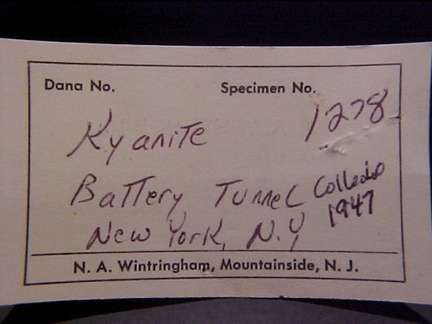 Dana No. Specimen No.
Kyanite 1278
Battery Tunnel Collected
New York, N.Y 1947
N. A. Wintringham, Mountainside, N. J.